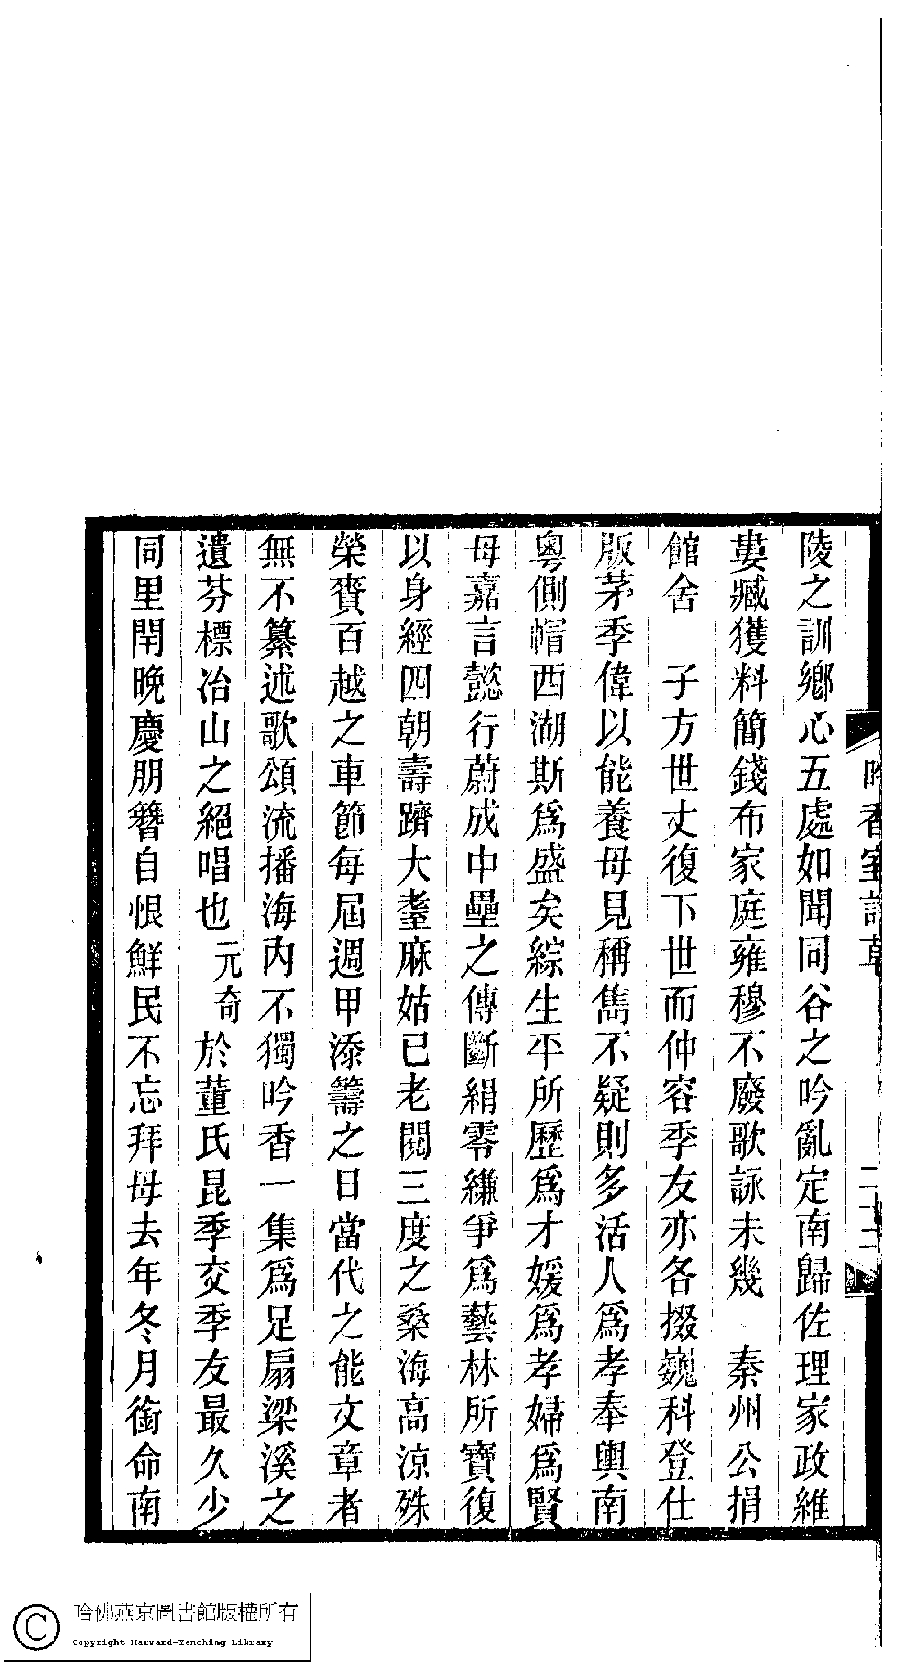 陵之訓鄉心五處如聞同谷之吟亂定南歸佐理家政維
婁臧獲料簡錢布家庭雍穆不廢歌詠未幾　秦州公捐
館舍　子方世丈復下世而仲容季友亦各掇巍科登仕
版茅季偉以能養母見稱雋不疑則多活人爲孝奉輿南
粵側帽西湖斯爲盛矣綜生平所歷爲才媛爲孝婦爲賢
母嘉言懿行蔚成中壘之傳斷絹零縑爭爲藝林所寶復
以身經四朝壽躋大耋麻姑已老閱三度之桑海高涼殊
榮賚百越之車節每屆週甲添籌之日當代之能文章者
無不纂述歌頌流播海內不獨吟香一集爲足扇梁溪之
遺芬標冶山之絕唱也元奇於董氏昆季交季友最久少
同里閈晚慶朋簪自恨鮮民不忘拜母去年冬月銜命南
吟香室詩草
哈佛燕京圖書館版權所有
Copyright Harvard-Yenching Library